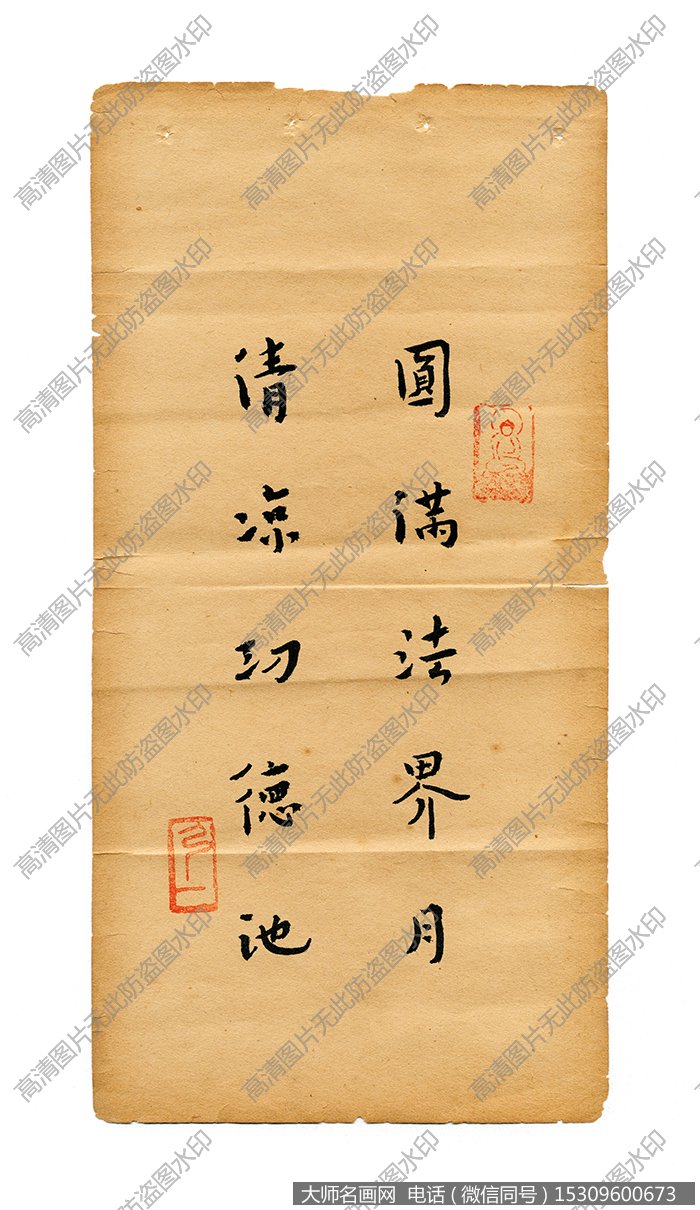 圓滿法界月
清涼功德池
高清图片无此防盗图水印
大师名画网 电话（微信同号）15309600673